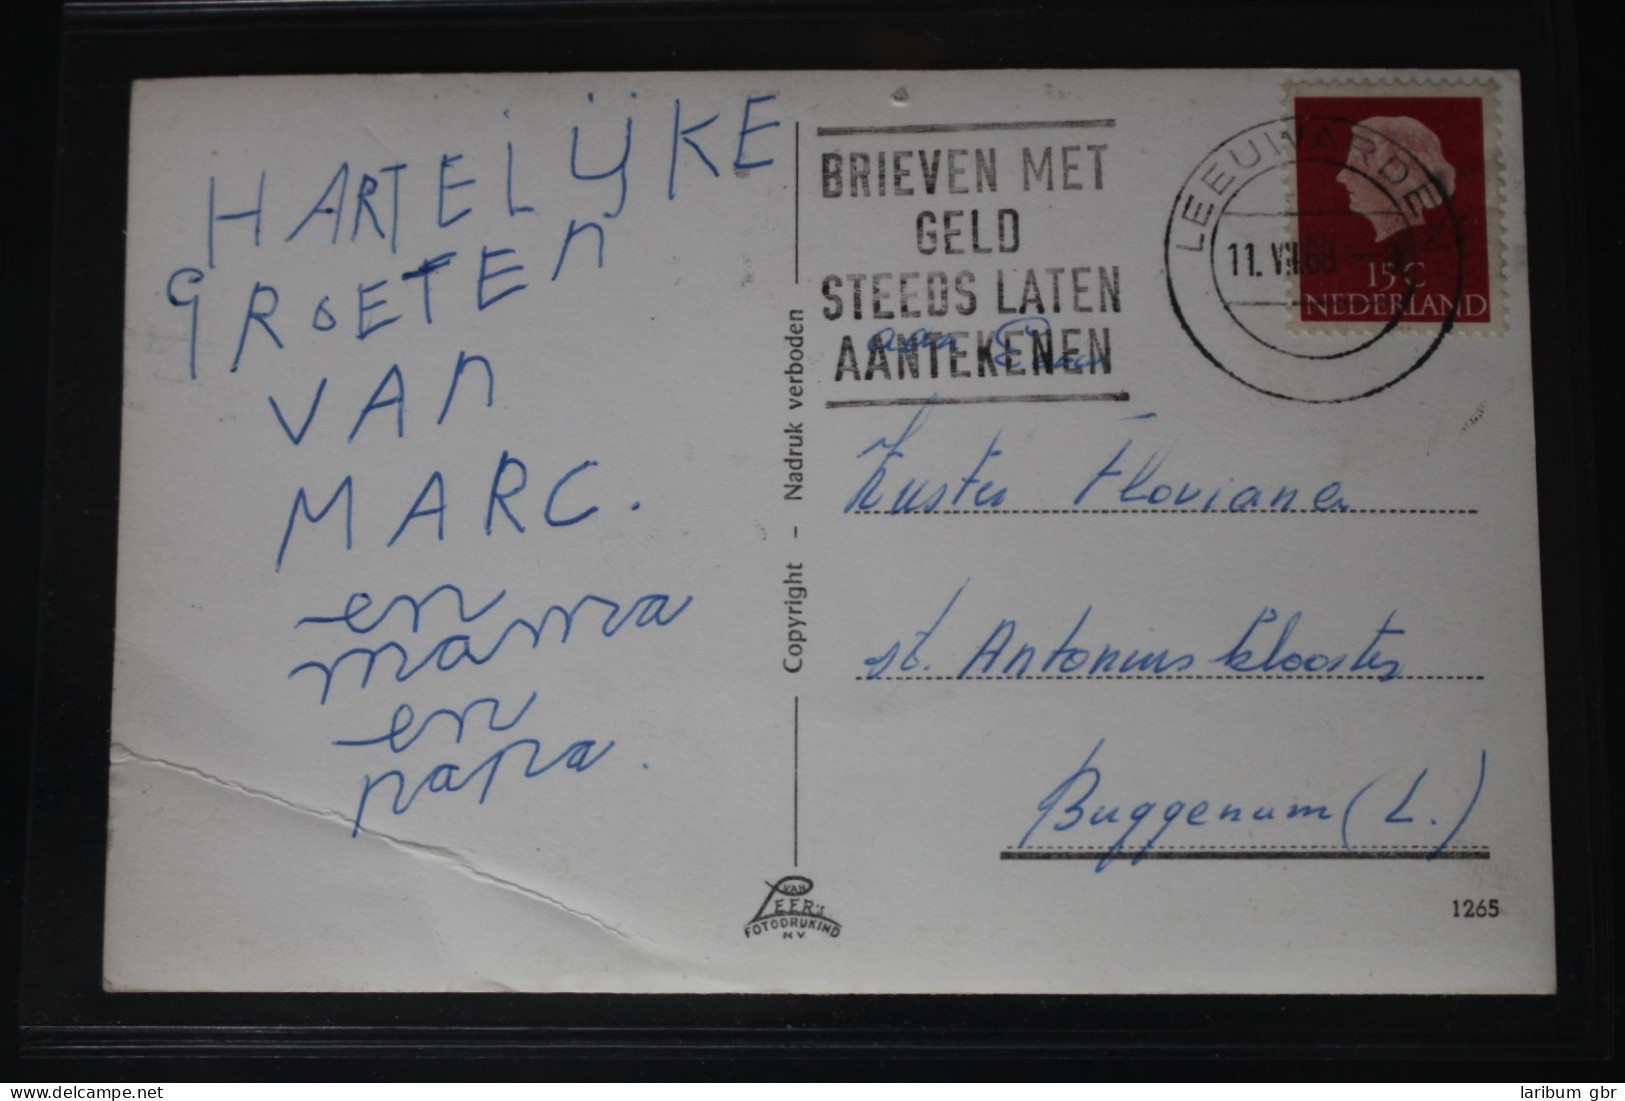 HARTELIJKE
GROETEN
VAN
MARC.
en
mama
en
papa.
Copyright - Nadruk verboden
VAN
LEER'S
FOTODRUKIND
N.V.
BRIEVEN MET
GELD
STEEDS LATEN
AANTEKENEN
LEEUWARDEN
11. VII.68
15 C
NEDERLAND
aan
Zuster Floviana
st. Antonius klooster
Buggenum (L.)
1265
Delcampe.net
laribum gbr